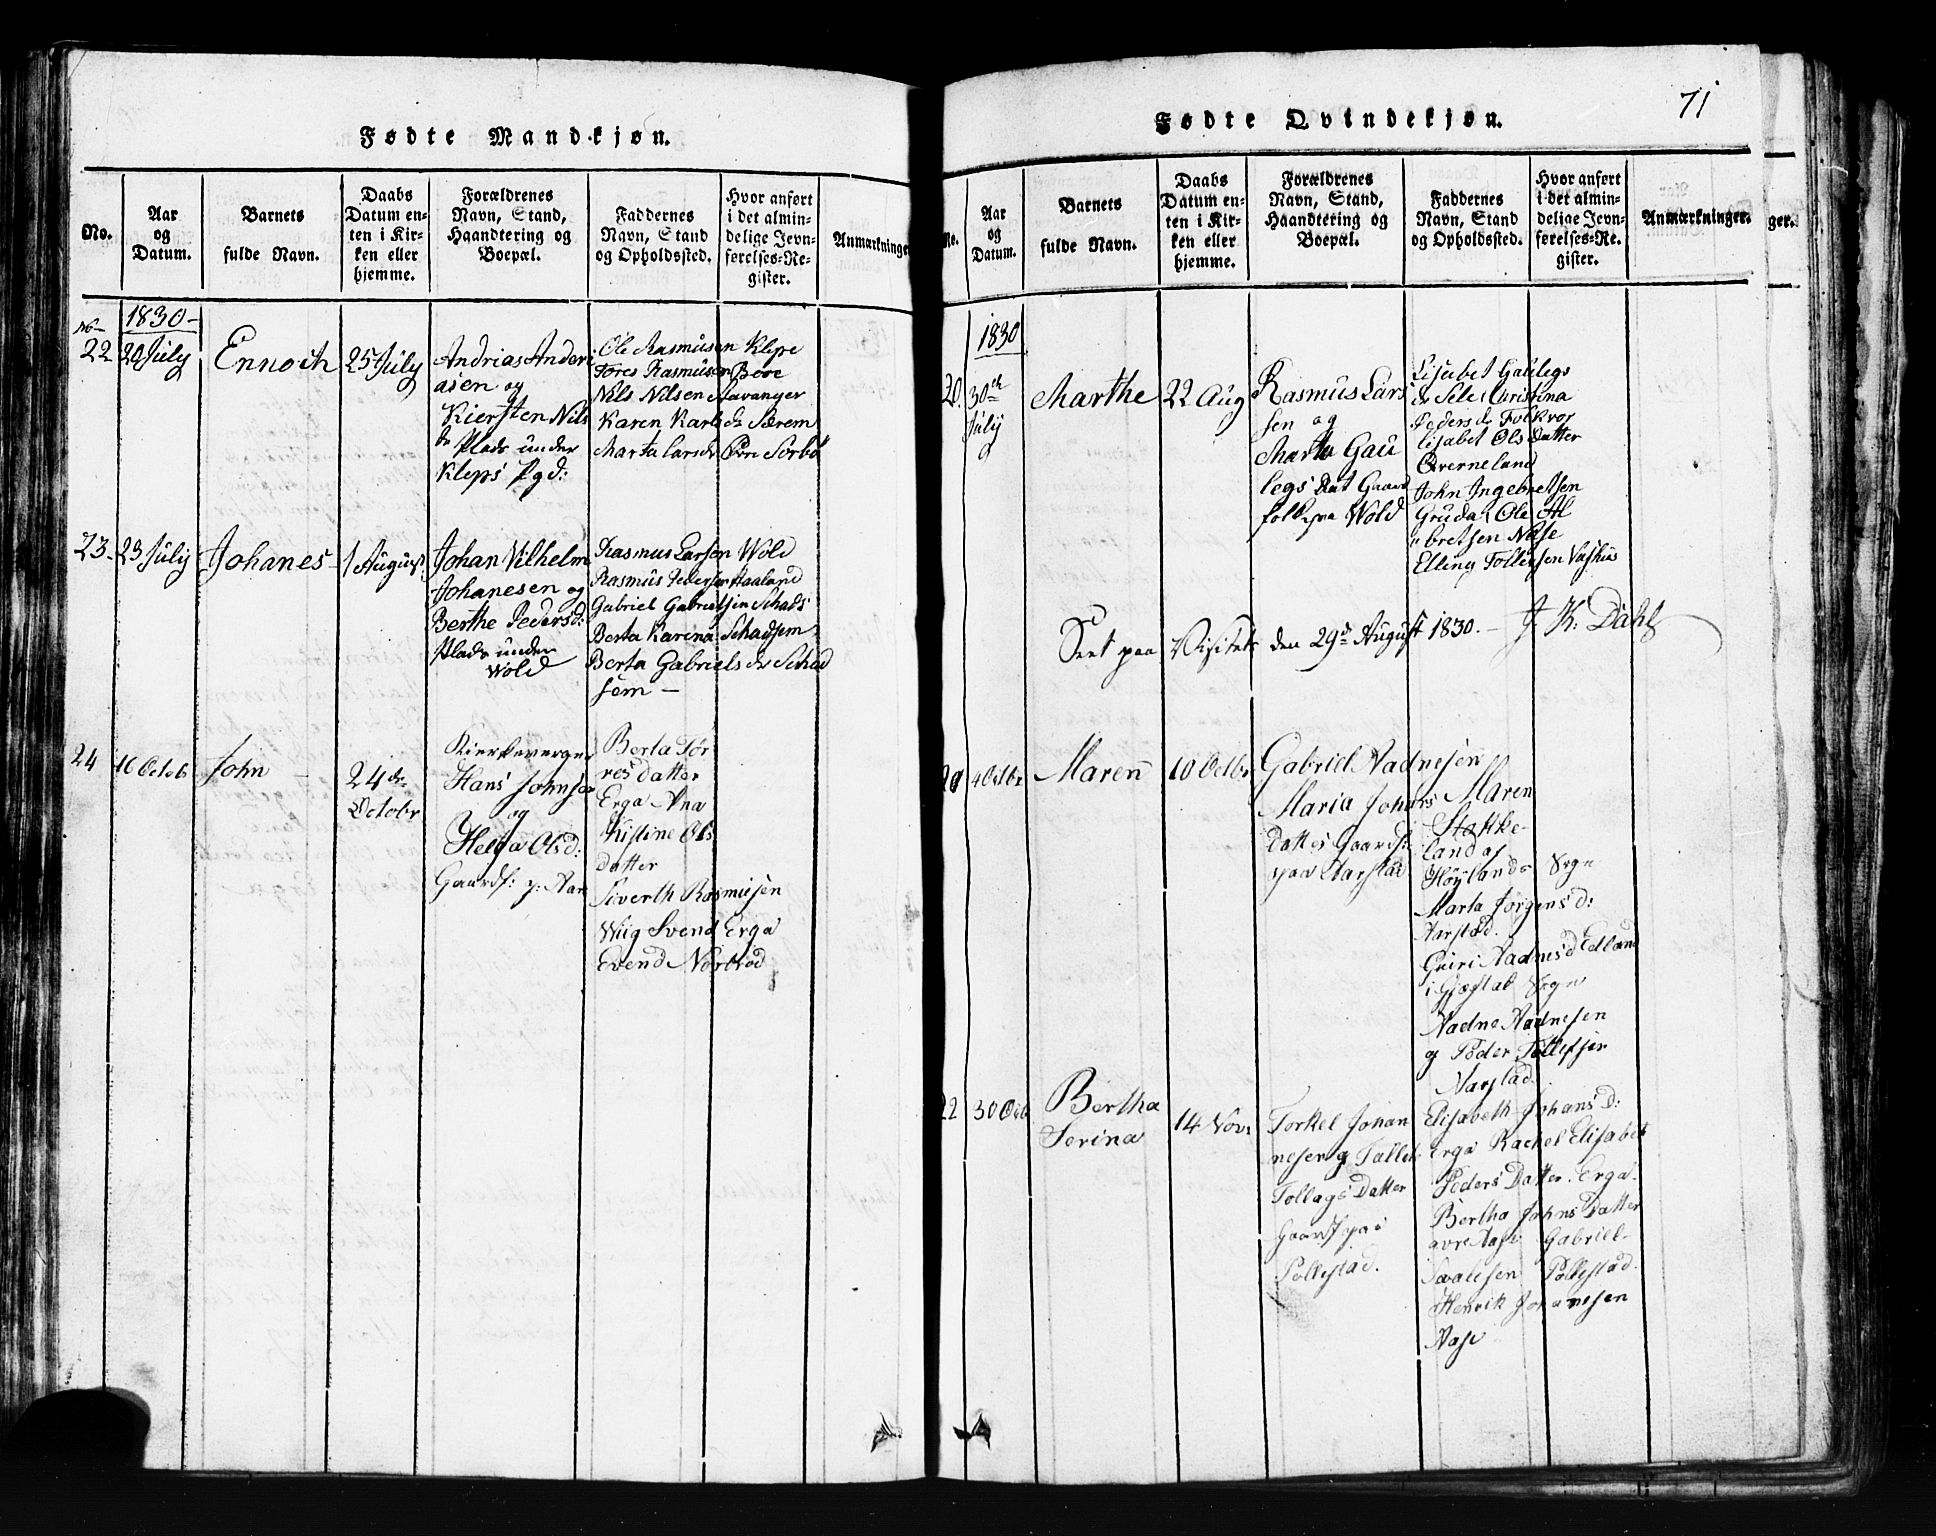 Fødte Mandkjøn.
No.
Aar
og
Datum.
Barnets
fulde Navn.
Daabs
Datum en-
ten i Kir-
ken eller
hjemme.
Forældrenes
Navn, Stand,
Haandtering og
Boepæl.
Faddernes
Navn, Stand
og Opholdssted.
Hvor anført
i det almin-
delige Jevn-
førelses-Re-
gister.
Anmærkninger
1830
22
20 July
Ennoch
25 July
Andrias Anderi
asen og
Kiersten Nils
dr Plads under
Klepps Pgd:
Ole Rasmusen Klepe
Tores Rasmusen Bore
Nils Nilsen Stavanger
Karen Karls dr Særem
Marta Larsdr Øvre Sørbø
23
23 July
Johanes
1 August
Johan Vilhelm
Johanesen og
Berthe Pedersd:
Plads under
Wold
Rasmus Larsen Wold
Rasmus Pedersen Haaland
Gabriel Gabrielsen Schads
Berta Karina Schadsem
Berta Gabriels dr Schad
sem
24
16 Octob
John
24de
Octobr
Kierkeverger
Hans Johnsen
og
Helga Olsd:
Gaardf: p: Aan
Berta Tør
res datter
Erga Ana
Kistine Ols
datter
Siverth Rasmusen
Wiig Svend Erga
Evend Nørbrød
71
Fødte Qvindekjøn.
No.
Aar
og
Datum.
Barnets
fulde Navn.
Daabs
Datum en-
ten i Kir-
ken eller
hjemme.
Forældrenes
Navn, Stand,
Haandtering og
Boepæl.
Faddernes
Navn, Stand
og Opholdssted.
Hvor anført
i det almin-
delige Jevn-
førelses-Re-
gister.
Anmærkninger.
ger.
1830
20.
30te
July
Marthe
22 Aug
Rasmus Lars
sen og
Marta Gau
legs Dat Gaard
folk paa Wold
Lisabet Gaulegs
dr Sele Christina
Peders dr Folkvor
Lisabet Ols Datter
Øverneland
John Ingebretsen
Gruda Ole Al
bretsen Nase
Elling Tollefsen Vashus
Seet paa Visitats den 29de August 1830. J. K. Dahl
4 Octbr
Maren
10 Octbr
Gabriel Aadnesen
Maria Johans
Datter Gaardf:
paa Aarstad
Maren
Støkke-
land af
Høylands Sogn
Marta Jørgens d:
Aarstad.
Guri Aadnes d Edland
i Gjæstal Sogn
Aadne Aadnesen
og Peder Tollefsen
Aarstad
22
30 Octb
Bertha
Serina
14 Novr
Torkel Johan
nesen og Tallet
Tollags Datter
Gaardf paa
Pollestad.
Elisabeth Johans D:
Erga Rachel Elisabet
Peders Datter. Erga.
Bertha Johns Datter
øvre Aase Gabriel
Svalesen Pollestad.
Henrik Johanesen
Aase